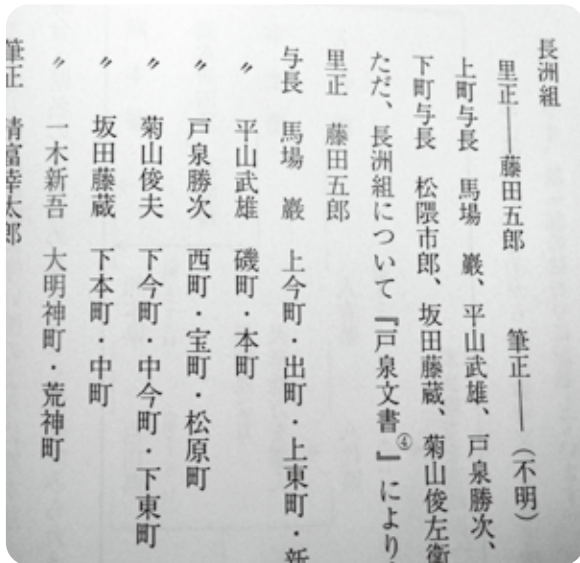 長洲組
里正――藤田五郎　筆正――(不明)
上町与長　馬場　巖、平山武雄、戸泉勝次、
下町与長　松隈市郎、坂田藤蔵、菊山俊左衛
ただ、長洲組について『戸泉文書④』により
里正　藤田五郎
与長　馬場　巖　上今町・出町・上東町・新
〃　平山武雄　磯町・本町
〃　戸泉勝次　西町・宝町・松原町
〃　菊山俊夫　下今町・中今町・下東町
〃　坂田藤蔵　下本町・中町
〃　一木新吾　大明神町・荒神町
筆正　清富幸太郎